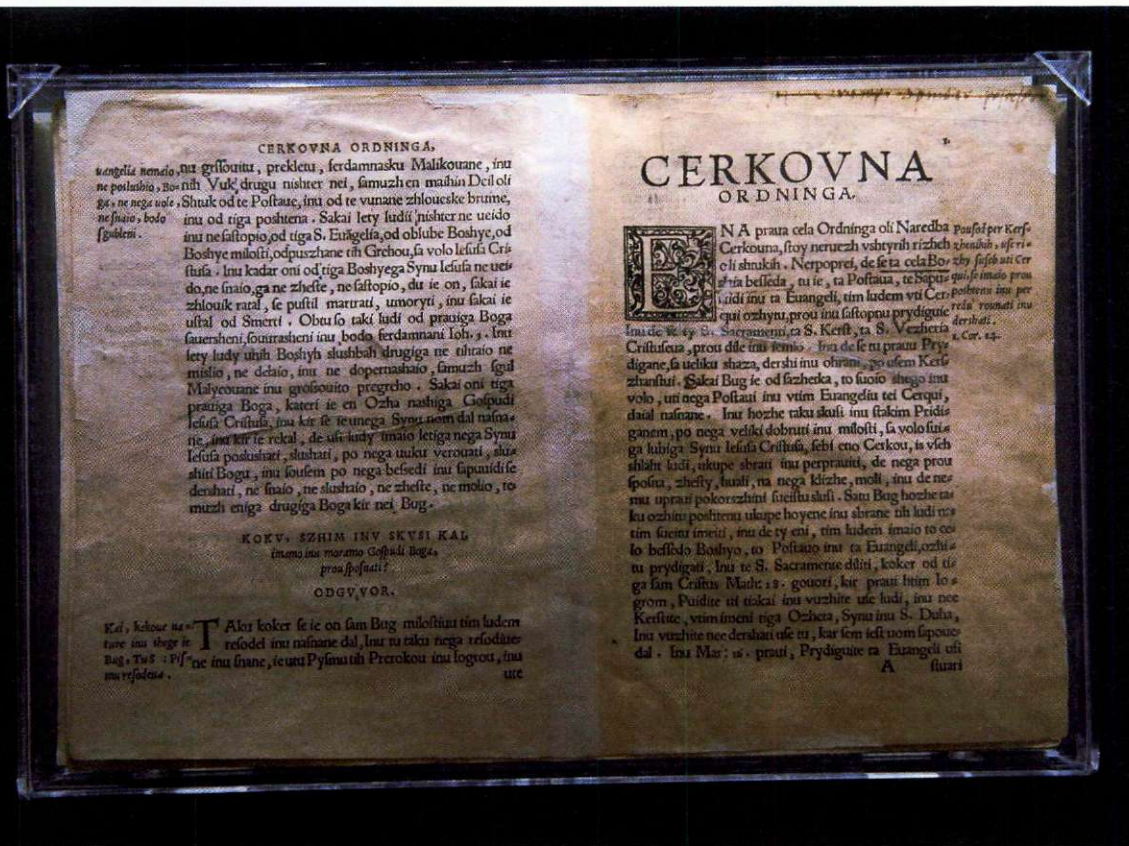 CERKOVNA ORDNINGA,
uangelia nemaio,
ne poslushio, Bo-
ga, ne nega uole,
ne ſnaio, bodo
ſgubleni.
nu greſſouitu, prekletu, ferdamnasku Malikouane, inu
nih Vuk, drugu nishter nei, ſamuzh en maihin Deil oli
Shtuk od te Poſtaue, inu od te vunane zhloueske brume,
inu od tiga poshtena. Sakai lety ludii nishter ne ueido
inu ne ſaſtopio, od tiga S. Euãgelia, od oblube Boshye, od
Boshye miloſti, odpuszhane tih Grehou, ſa volo Ieſuſa Cri-
ſtuſa. Inu kadar oni od tiga Boshyega Synu Ieſuſa ne uei-
do, ne ſnaio, ga ne zheſte, ne ſaſtopio, du ie on, ſakai ie
zhlouik ratal, ſe puſtil martrati, umoryti, inu ſakai ie
uſtal od Smerti. Obtu ſo taki ludi od prauiga Boga
ſauersheni, ſourrasheni inu bodo ferdamnani Ioh. 3. Inu
lety ludy uhih Boshyh slushbah drugiga ne tihraio ne
mislio, ne delaio, inu ne dopernashaio, ſamuzh ſgul
Malycouane inu groſſouito pregreho. Sakai oni tiga
prauiga Boga, kateri ie en Ozha nashiga Goſpudi
Ieſuſa Criſtuſa, inu kir ſe ie unega Synu nom dal naſna-
ne, inu kir ie rekal, de uſi ludy imaio letiga nega Synu
Ieſuſa poslushati, slushati, po nega uuku verouati, slu-
shiti Bogu, inu ſouſem po nega beſſedi inu ſapuuidi ſe
dershati, ne ſnaio, ne slushaio, ne zheſte, ne molio, to
muzh eniga drugiga Boga kir nei Bug.
KOKV, SZHIM INV SKVSI KAI
imamo inu moramo Goſpudi Boga,
prou ſpoſnati?
ODGVVOR.
Kai, kekoue na-
ture inu shege ie
Bug, Tu S: Piſ-
mu reſodeua.
TAku koker ſe ie on ſam Bug miloſtiuu tim ludem
reſodel inu naſnane dal, Inu tu taku nega reſodiue-
ne inu ſnane, ie utu Pyſmu tih Prerokou inu Iogrou, inu
ute
CERKOVNA
ORDNINGA.
ENA praua cela Ordninga oli Naredba
Cerkouna, ſtoy neruezh vshtyrih rizheh
oli shtukih. Nerpoprei, de ſe ta cela Bo-
shia beſſeda, tu ie, ta Poſtaua, te Sapu-
uidi inu ta Euangeli, tim ludem vti Cer-
qui ozhytu, prou inu ſaſtopnu prydiguie
Inu de ſe ty S. Sacramenti, ta S. Kerſt, ta S. Vezheria
Criſtuſeua, prou dile inu iemlo. Inu de ſe tu prauu Pry-
digane, ſa ueliku shaza, dershi inu ohrani, po uſem Kerſ-
zhanſtui. Sakai Bug ie od ſazhetka, to ſuoio shego inu
volo, uti nega Poſtaui inu vtim Euangeliu tei Cerqui,
daial naſnane. Inu hozhe taku skuſi inu ſtakim Pridi-
ganem, po nega veliki dobruti inu miloſti, ſa volo ſui-
ga lubiga Synu Ieſuſa Criſtuſa, ſebi eno Cerkou, is vſeh
shlaht ludi, ukupe sbrati inu perprauiti, de nega prou
ſpoſna, zheſty, huali, na nega klizhe, moli, inu de ne-
mu upraui pokorszhini ſueiſtu slusi. Satu Bug hozhe ta-
ku ozhitu poshtenu ukupe hoyene inu sbrane tih ludi na
tim ſueitu imeiti, inu de ty eni, tim ludem imaio to ce-
lo beſſedo Boshyo, to Poſtauo inu ta Euangeli, ozhi-
tu prydigati, Inu te S. Sacramente diliti, koker od ti-
ga ſam Criſtus Math: 28. gouori, kir praui htim Io-
grom, Puidite ui tiakai inu vuzhite uſe ludi, inu nee
Kerſtite, vtim imeni tiga Ozheta, Synu inu S. Duha,
Inu vuzhite nee dershati uſe tu, kar ſem ieſt uom ſapoue-
dal. Inu Mar: 16. praui, Prydiguite ta Euangeli uſi
A ſtuari
Pouſod per Kerſ-
zhenikih, uſe ri-
zhy ſuſeb uti Cer
qui, ſe imaio prou
poshtenu inu per
redu rounati inu
dershati.
1. Cor. 14.